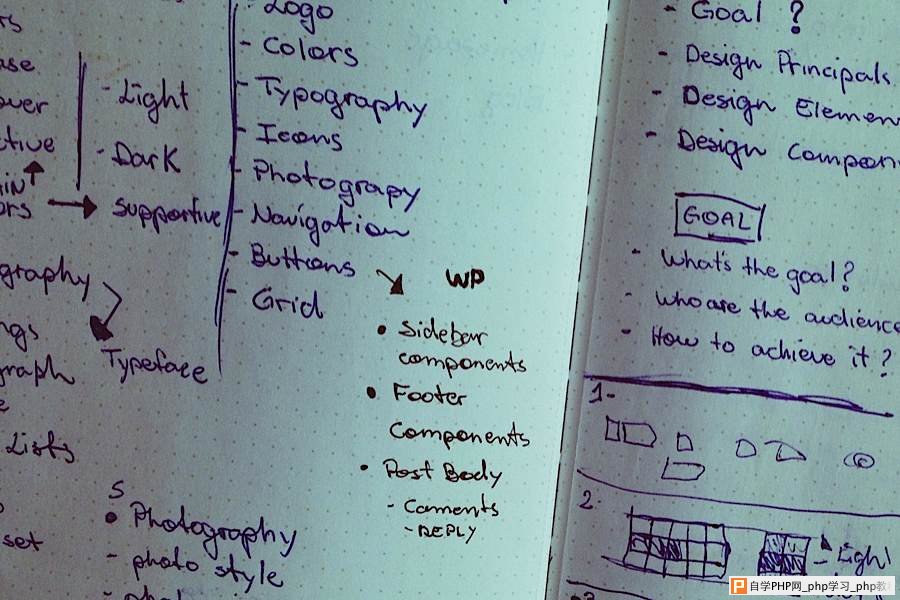 Light
Dark
supportive
Typeface
Lists
set
S
Photography
- photo style
Logo
- Colors
- Typography
- Icons
- Photograpy
- Navigation
- Buttons
- Grid
WP
• Sidebar
components
• Footer
Components
• Post Body
- Coments
- REPLY
- Goal ?
- Design Principals
- Design Elemen
- Design Compon
GOAL
- What's the goal?
- who are the audience
- How to achieve it?
1-
2.
- Light
自学PHP网_php学习_php教程